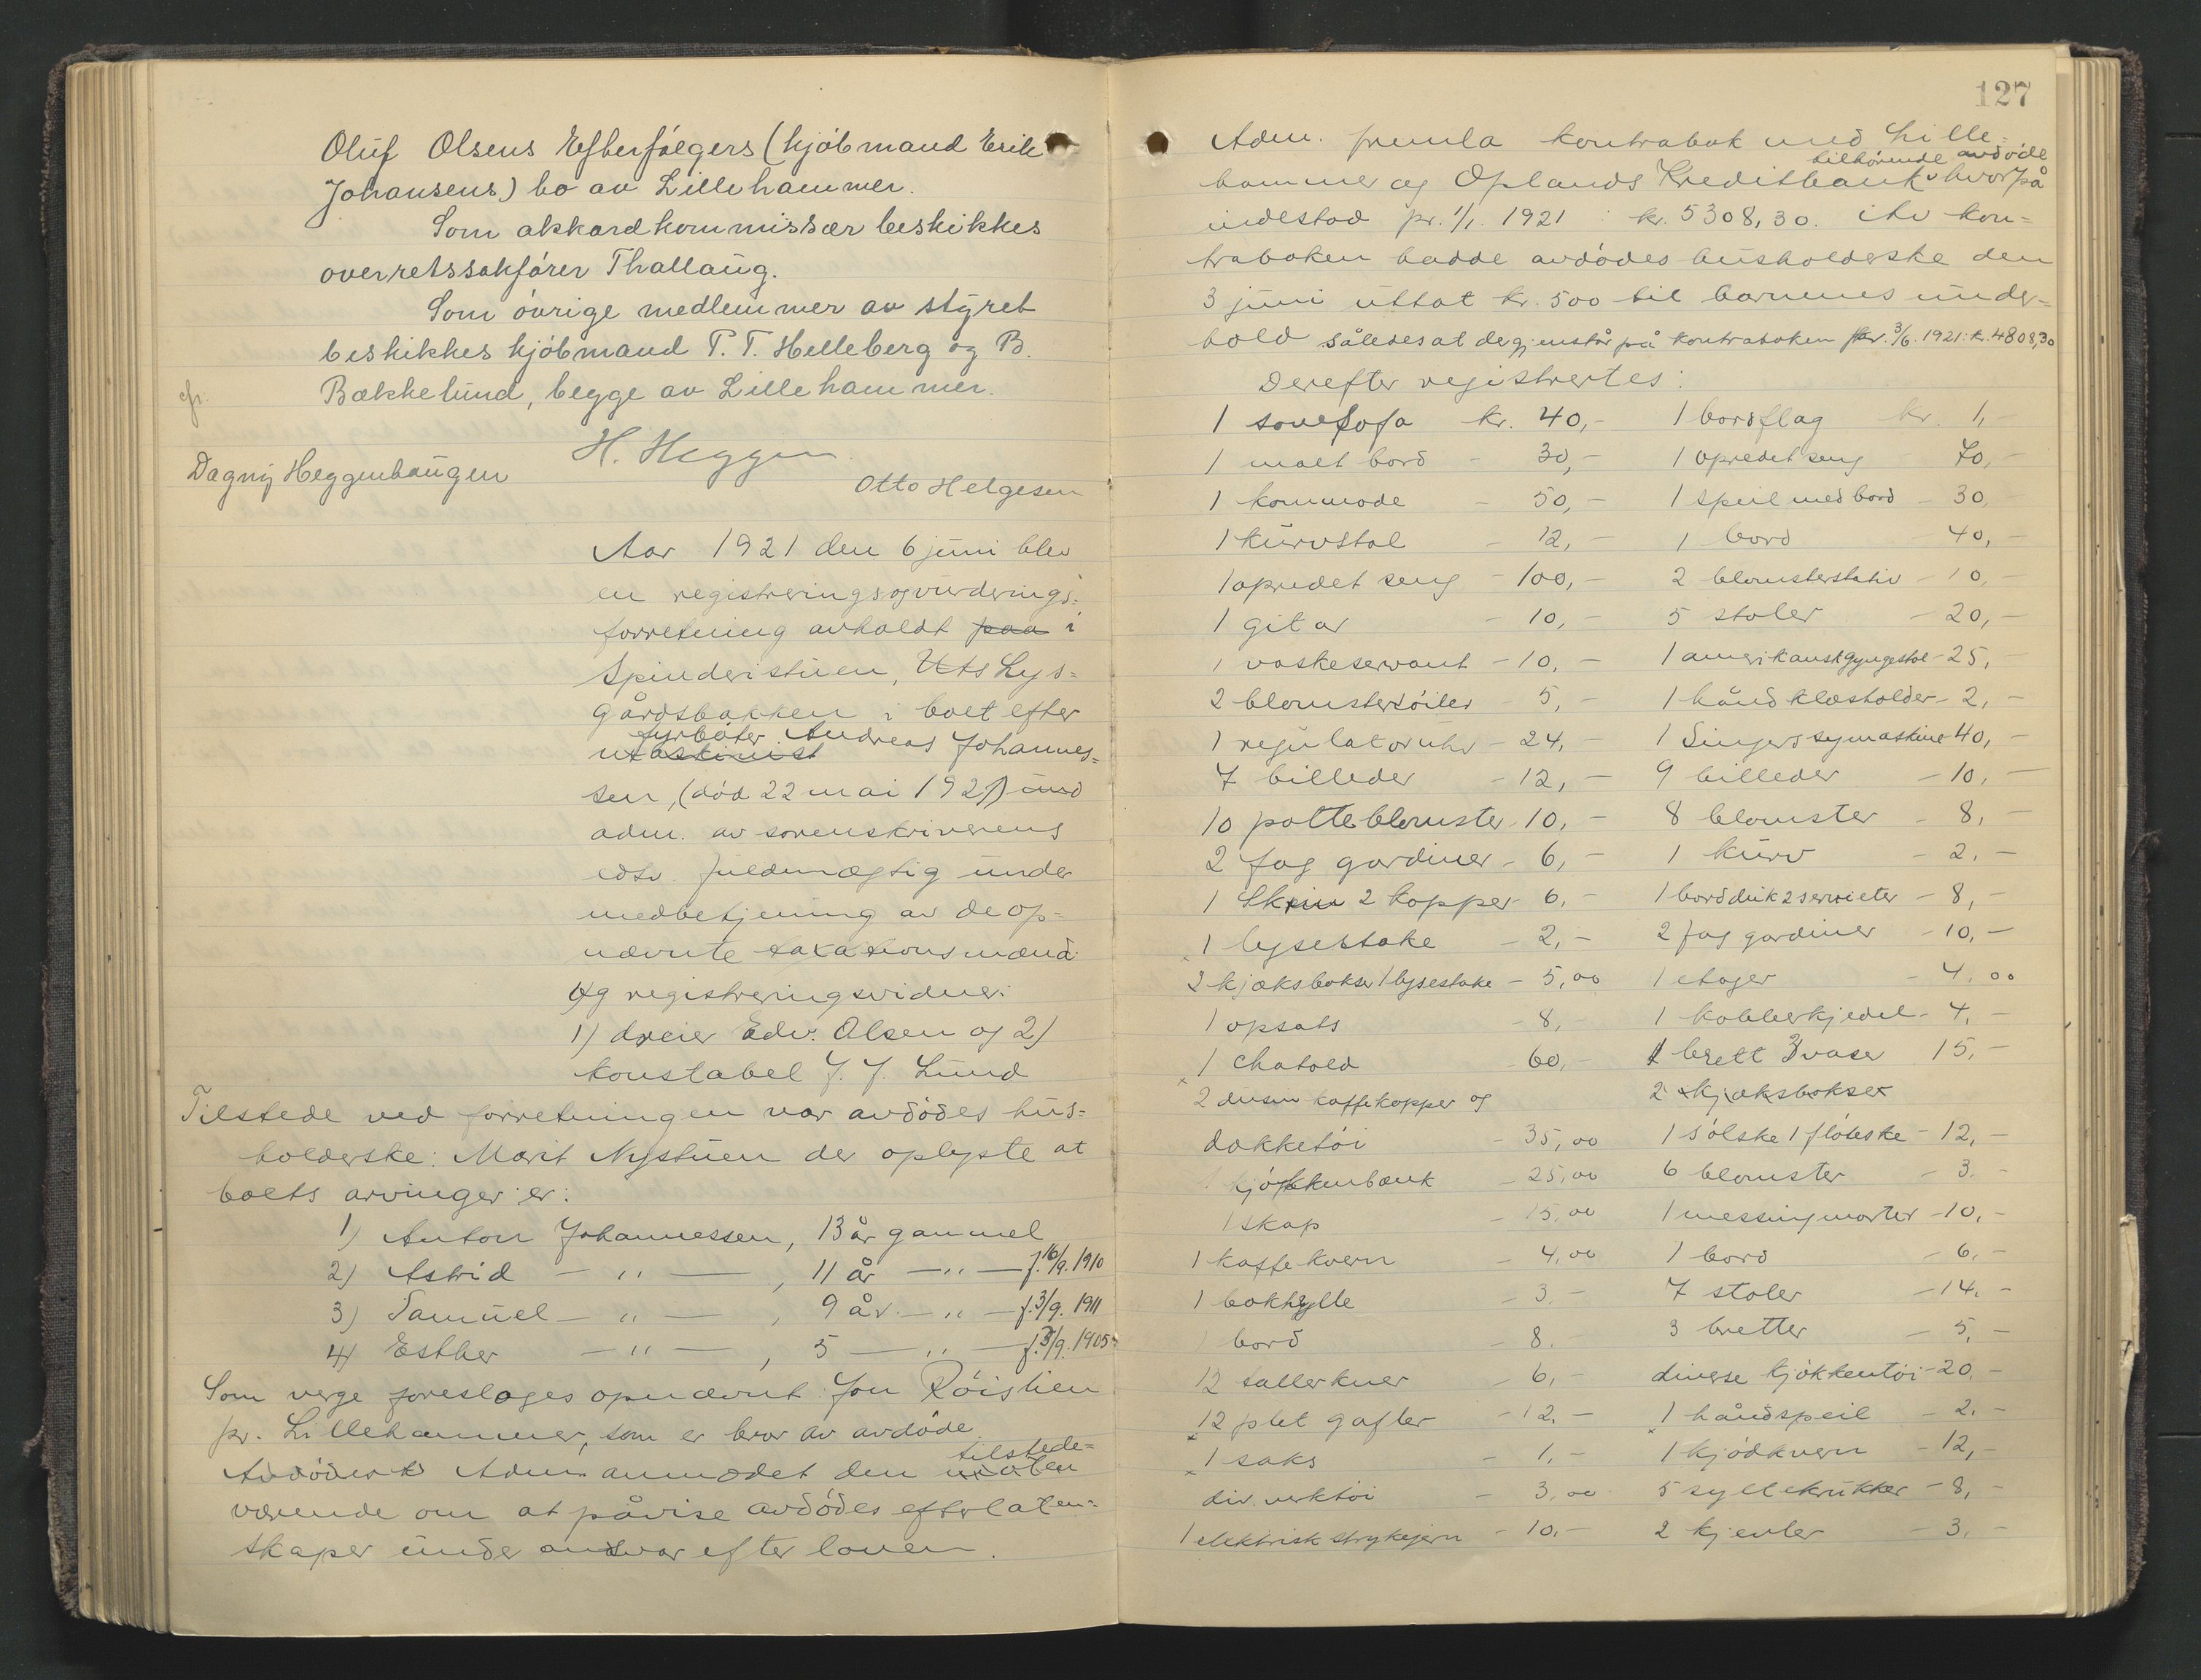 Oluf Olsens Efterfølgers (kjøbmand Erik
Johansens) bo av Lillehammer.
Som akkordkommissær beskikkes
overretssakfører Thallaug.
Som øvrige medlemmer av styret
beskikkes kjøbmand P. T. Helleberg og B.
Bækkelund, begge av Lillehammer.
H. Heggen
Dagny Heggenhaugen
Otto Helgesen
Aar 1921 den 6 juni blev
en registrerings og vurderings=
forretning avholdt paa i
Spinderistuen, Lys=
gårdsbakken i boet efter
fyrbøter Andreas Johannes=
maskinist
sen, (død 22 mai 1921) med
adm. av sorenskriverens
edsv. fuldmægtig under
medbetjening av de op=
nævnte taxationsmænd
og registreringsvidner:
1) dreier Edv. Olsen og 2)
konstabel J. J. Lund
Tilstede ved forretningen var avdødes hus=
holderske: Marit Nystuen der oplyste at
boets arvinger er:
1) Anton Johannessen, 13 år gammel
2) Astrid — " — , 11 år — " — f. 16/9. 1910
3) Samuel — " — , 9 år. — " — f. 3/9. 1911
4) Esther — " — , 5 — " — f. 3/9. 1905
Som verge foresloges opnævnt: Jon Röislien
pr. Lillehammer, som er bror av avdøde
Adm. anmodet den tilstede=
værende om at påvise avdødes efterlaten=
skaper under ansvar efter loven.
127
Adm. fremla kontrabok med Lille=
hammer og Oplands Kreditbank tilhørende avdøde hvorpå
indestod pr. 1/1. 1921 : kr. 5308,30. Av kon=
traboken hadde avdødes husholderske den
3 juni uttat kr. 500 til barnenes under=
hold således at de gjenstår på kontraboken pr. 3/6. 1921: kr. 4808,30
Derefter registrertes:
1 sovesofa kr. 40,- 1 bordflag kr. 1,
1 malt bord - 30,- 1 opredet seng - 70,-
1 kommode - 50,- 1 speil med bord - 30,
1 kurvstol - 12,- 1 bord 40,-
1 opredet seng - 100,- 2 blomsterstativ - 10,-
1 gitar - 10,- 5 stoler - 20,-
1 vaskeservant - 10,- 1 amerikansk gyngestol - 25,-
2 blomstersøiler 5,- 1 håndklæsholder - 2,-
1 regulatoruhr - 24,- 1 Singers symaskine - 40,-
7 billeder - 12,- 9 billeder - 10,-
10 potteblomster - 10,- 8 blomster - 8,-
2 fag gardiner - 6,- 1 kurv - 2,-
1 skrin 2 kopper - 6,- 1 bordduk 2 servieter - 8,-
1 lysestake - 2,- 2 fag gardiner - 10,-
2 kjæksbokser 1 lysestake - 5,00 1 etager - 4,00
1 opsats - 8,- 1 kobberkjedel - 4,-
1 chatold - 60,- 1 brett 3 vaser 15,-
2 dusin kaffekopper og 2 kjæksbokser
dokketøi - 35,00 1 sølske 1 fløteske - 12,-
kjøkkenbænk - 25,00 6 blomster - 3,-
1 skap - 15,00 1 messingmorter - 10,-
1 kaffekvern - 4,00 1 bord - 6,-
1 bokhylle - 3,- 7 stoler - 14,-
1 bord - 8. 3 bretter - 5,-
12 tallerkner - 6,- diverse kjøkkentøi - 20,-
12 plet gafler - 12,- 1 håndspeil - 2,-
1 saks - 1,- 1 kjødkvern - 12,-
div. verktøi - 3,00 5 syltekrukker - 8,-
1 elektrisk strykejern - 10,- 2 kjevler - 3,-